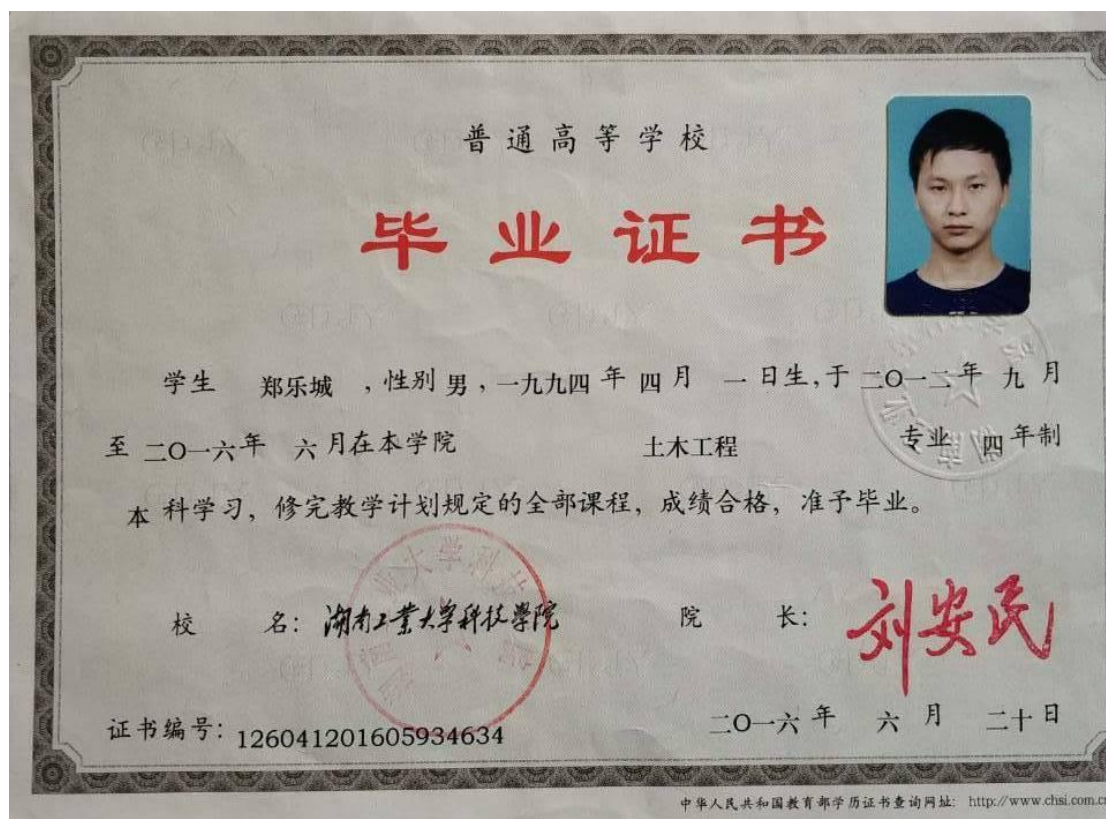 普通高等学校
毕业证书
学生 郑乐城 ,性别 男,一九九四 年 四 月 一 日生,于 二〇一二 年 九 月
至 二〇一六年 六 月在本学院 土木工程 专业 四 年制
本 科学习,修完教学计划规定的全部课程,成绩合格,准予毕业。
校 名:湖南工業大学科技学院 院 长:刘安民
证书编号:126041201605934634 二〇一六 年 六 月 二十 日
中华人民共和国教育部学历证书查询网址: http://www.chsi.com.c